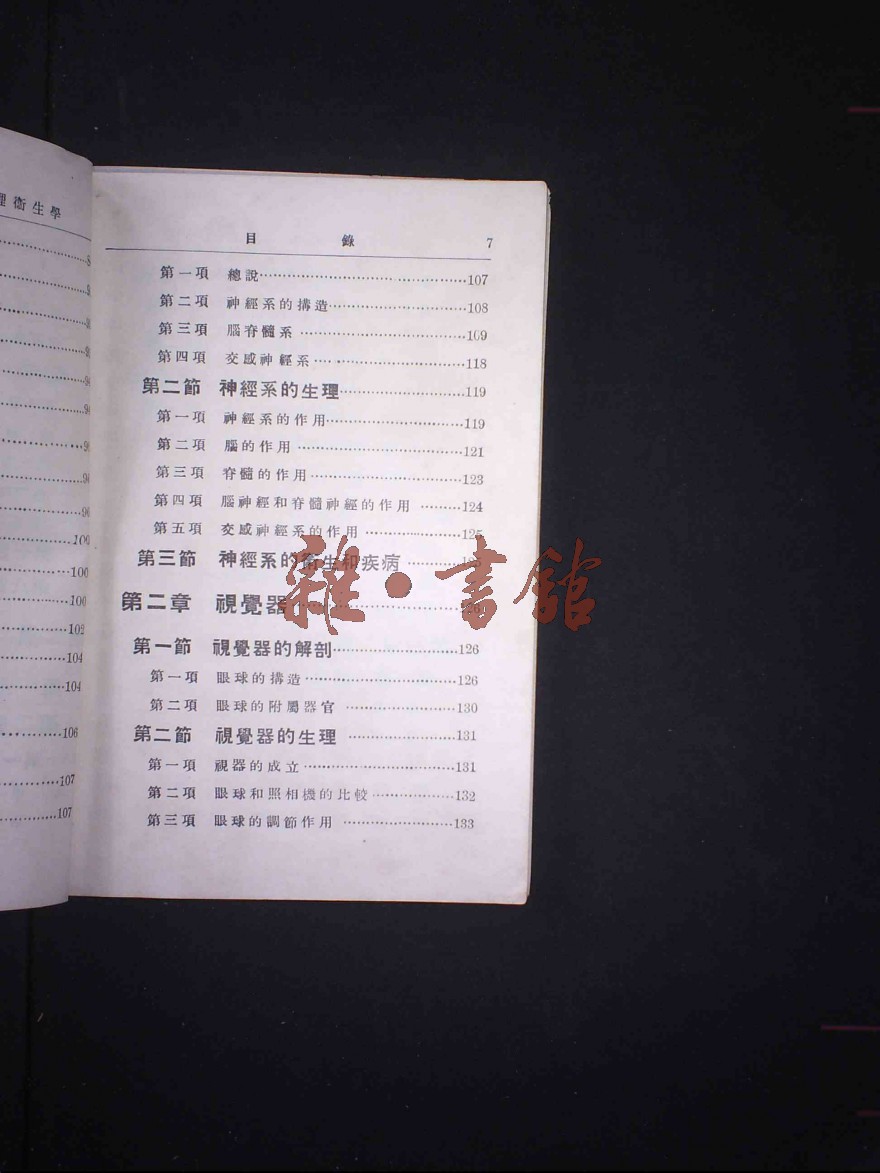 理衞生學
100
100
100
102
104
104
106
107
107
目錄 7
第一項 總說……107
第二項 神經系的搆造……108
第三項 腦脊髓系……109
第四項 交感神經系……118
第二節 神經系的生理……119
第一項 神經系的作用……119
第二項 腦的作用……121
第三項 脊髓的作用……123
第四項 腦神經和脊髓神經的作用……124
第五項 交感神經系的作用……125
第三節 神經系的衞生和疾病……
第二章 視覺器……126
第一節 視覺器的解剖……126
第一項 眼球的搆造……126
第二項 眼球的附屬器官……130
第二節 視覺器的生理……131
第一項 視器的成立……131
第二項 眼球和照相機的比較……132
第三項 眼球的調節作用……133
雜·書館